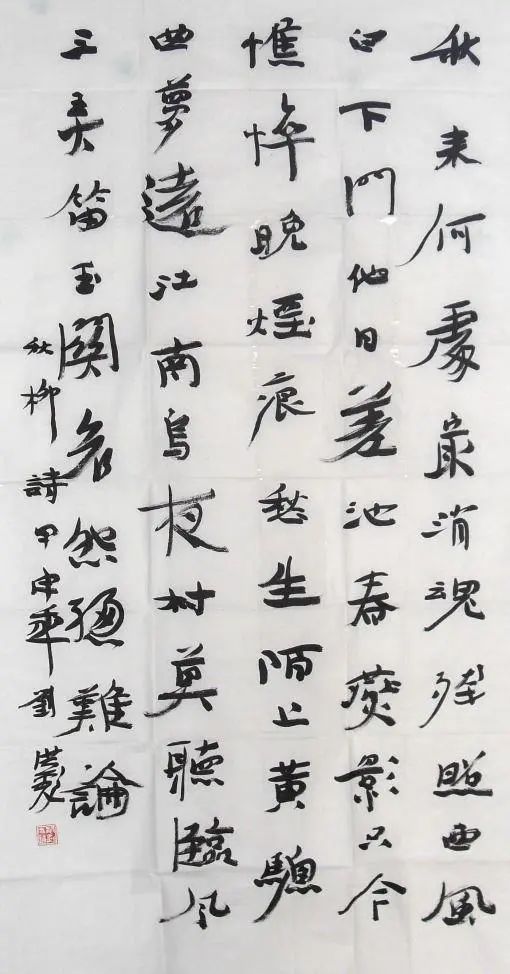 秋来何處最消魂殘照西風
白下門他日差池春燕影只今
憔悴晚煙痕愁生陌上黃驄
曲夢遠江南烏夜村莫聽臨风
三弄笛玉關哀怨總難論
秋柳詩甲申年劉洪彪